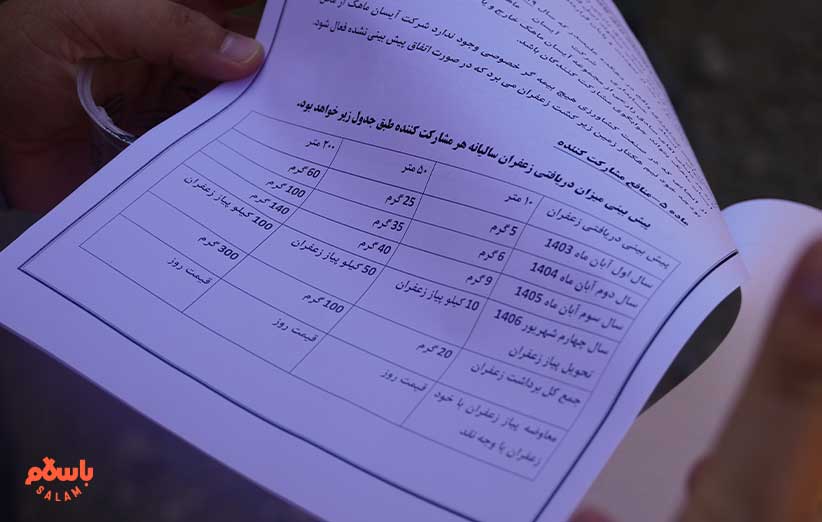 در صنعت کشاورزی هیچ بیمه گر خصوصی وجود ندارد شرکت آیسان ماهک از محل
زیر کشت زعفران می برد که در صورت اتفاق پیش بینی نشده فعال شود.
ماده ۵-منافع مشارکت کننده
پیش بینی میزان دریافتی زعفران سالیانه هر مشارکت کننده طبق جدول زیر خواهد بود.
پیش بینی دریافتی زعفران ۱۰ متر ۵۰ متر ۲۰۰ متر
سال اول آبان ماه 1403 5 گرم 25 گرم 60 گرم
سال دوم آبان ماه 1404 6 گرم 35 گرم 100 گرم
سال سوم آبان ماه 1405 9 گرم 40 گرم 140 گرم
سال چهارم شهریور 1406 10 کیلو پیاز زعفران 50 کیلو پیاز زعفران 100 کیلو پیاز زعفران
تحویل پیاز زعفران
جمع کل برداشت زعفران 20 گرم 100 گرم 300 گرم
معاوضه پیاز زعفران با خود قیمت روز قیمت روز قیمت روز
زعفران یا وجه نقد
باسلام
SALAM